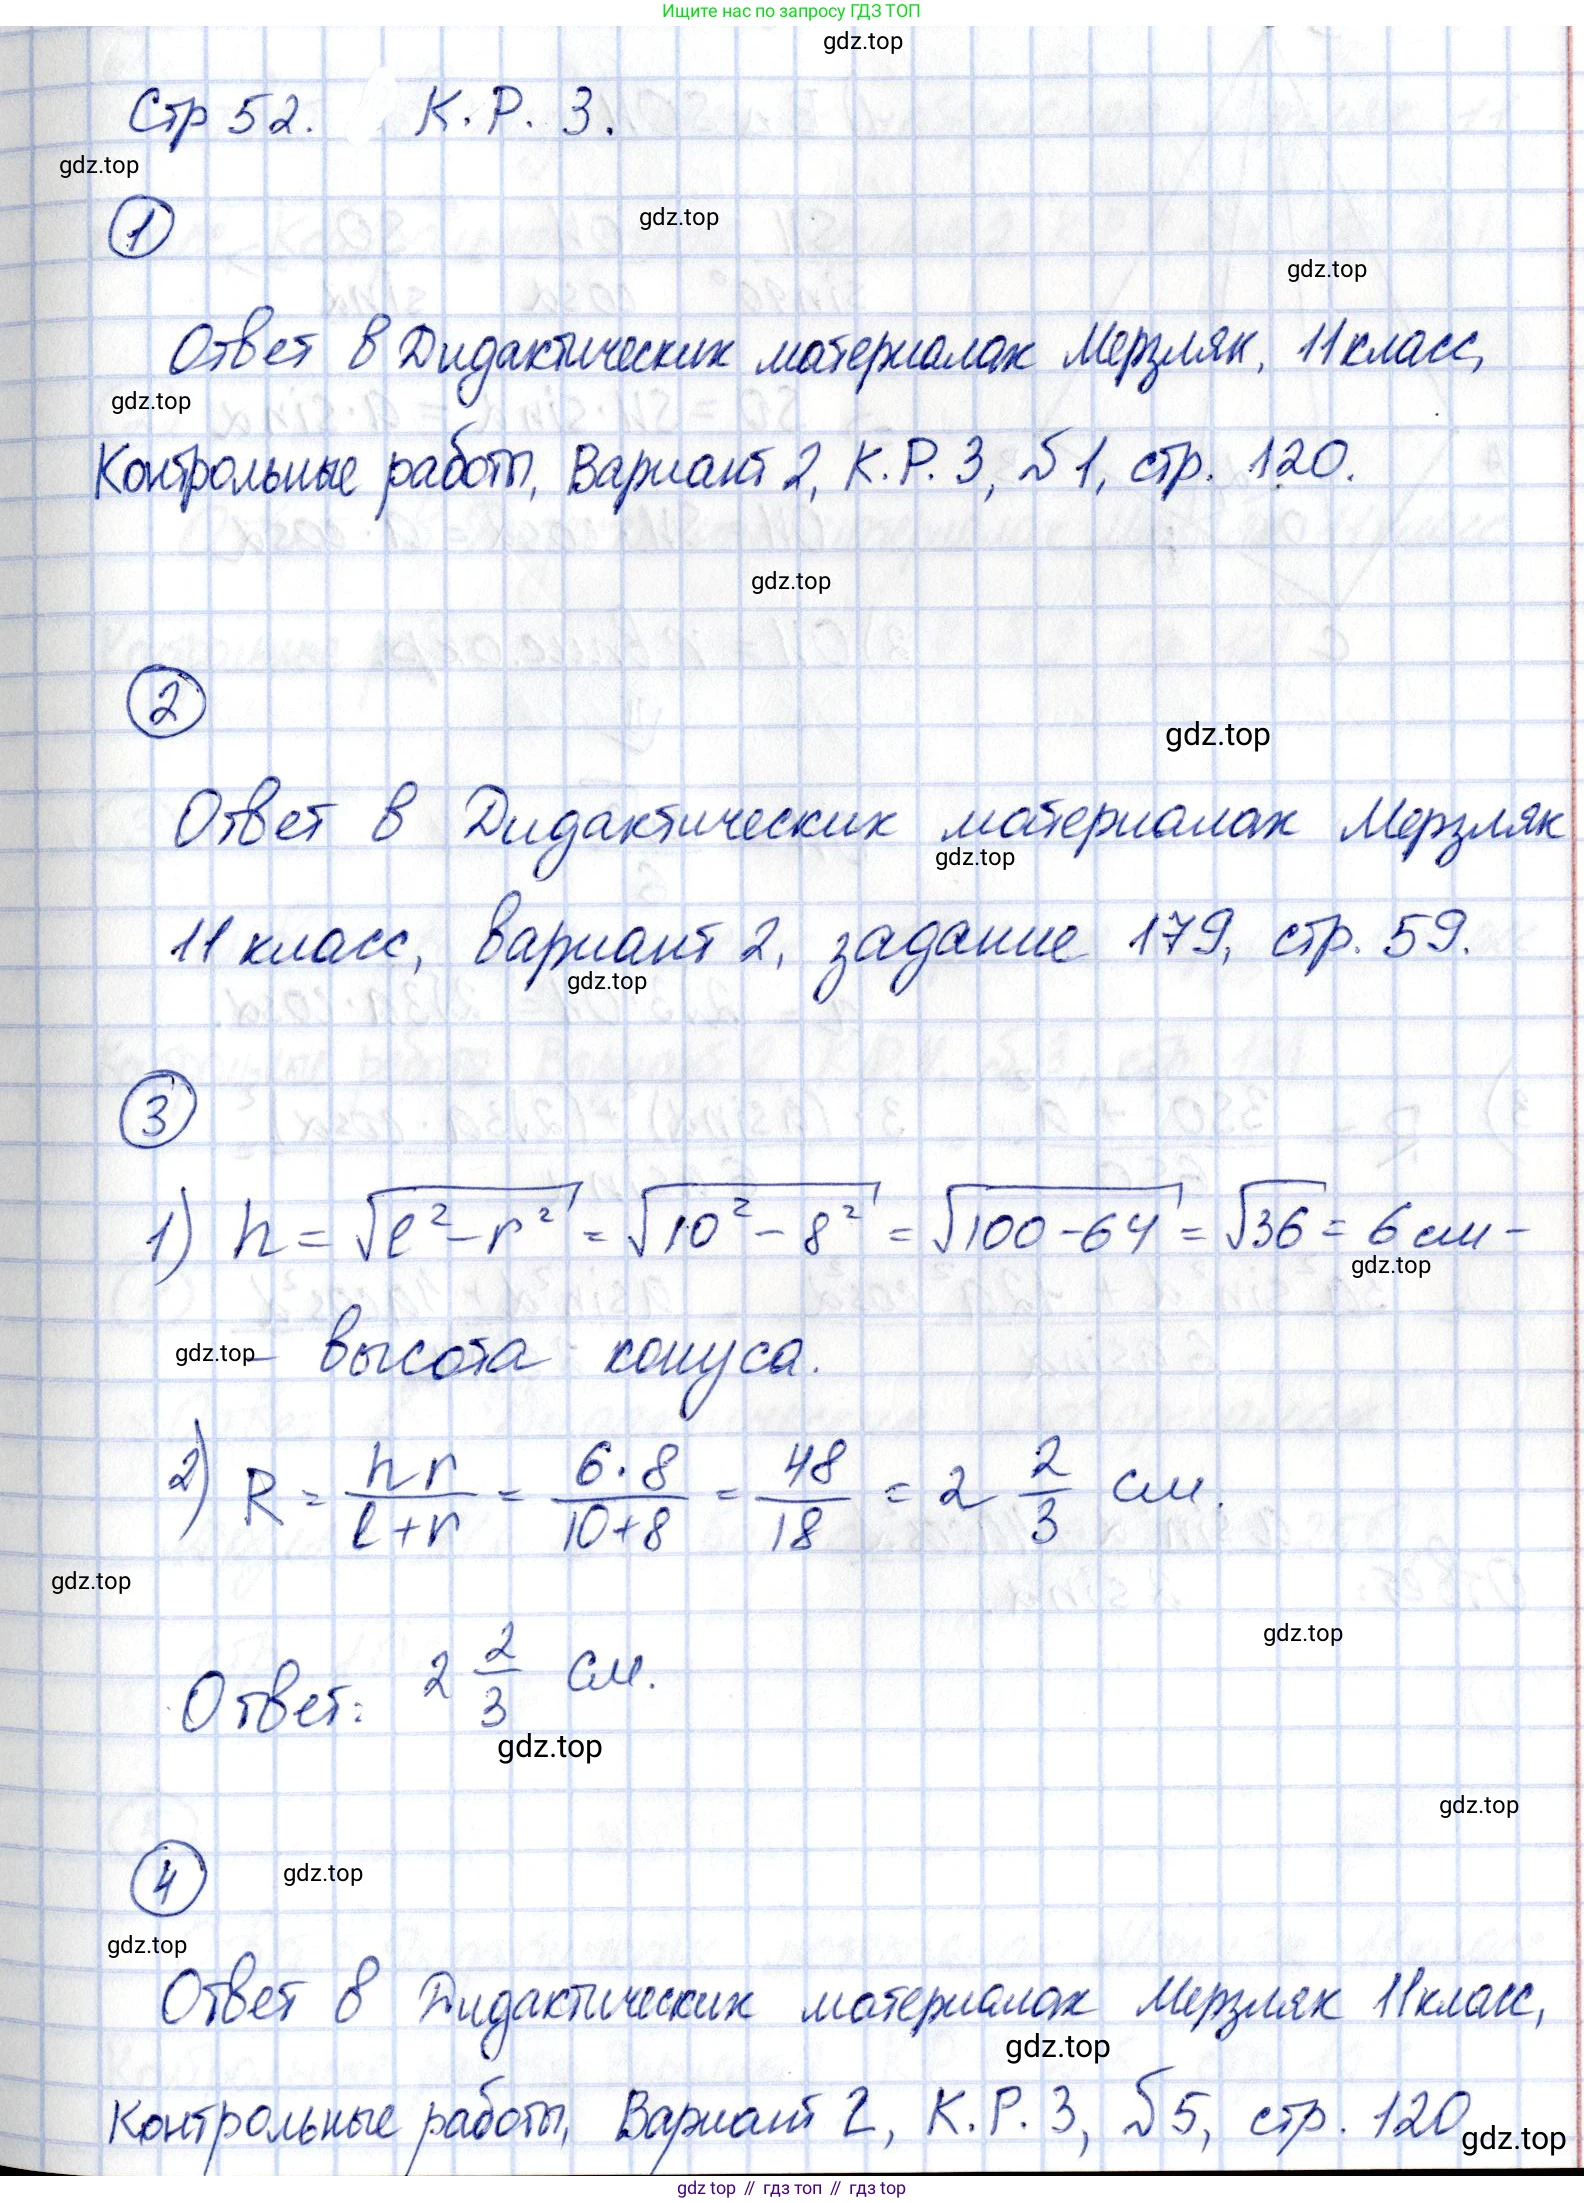 Ищите нас по запросу ГДЗ ТОП
gdz.top
Стр 52. К.Р. 3.
gdz.top
1
gdz.top
gdz.top
Ответ в Дидактических материалах Мерзляк, 11 класс,
gdz.top
Контрольные работы, Вариант 2, К.Р. 3, №1, стр. 120.
gdz.top
2
gdz.top
Ответ в Дидактических материалах Мерзляк
gdz.top
11 класс, вариант 2, задание 179, стр. 59.
gdz.top
3
1) h = √(l² - r²) = √(10² - 8²) = √(100 - 64) = √36 = 6 см -
gdz.top
- высота конуса.
gdz.top
2) R = hr/(l+r) = 6·8/(10+8) = 48/18 = 2 2/3 см.
gdz.top
gdz.top
Ответ: 2 2/3 см.
gdz.top
gdz.top
4
gdz.top
gdz.top
Ответ в Дидактических материалах Мерзляк 11 класс,
gdz.top
Контрольные работы, Вариант 2, К.Р. 3, №5, стр. 120
gdz.top
gdz top // гдз топ // gdz top